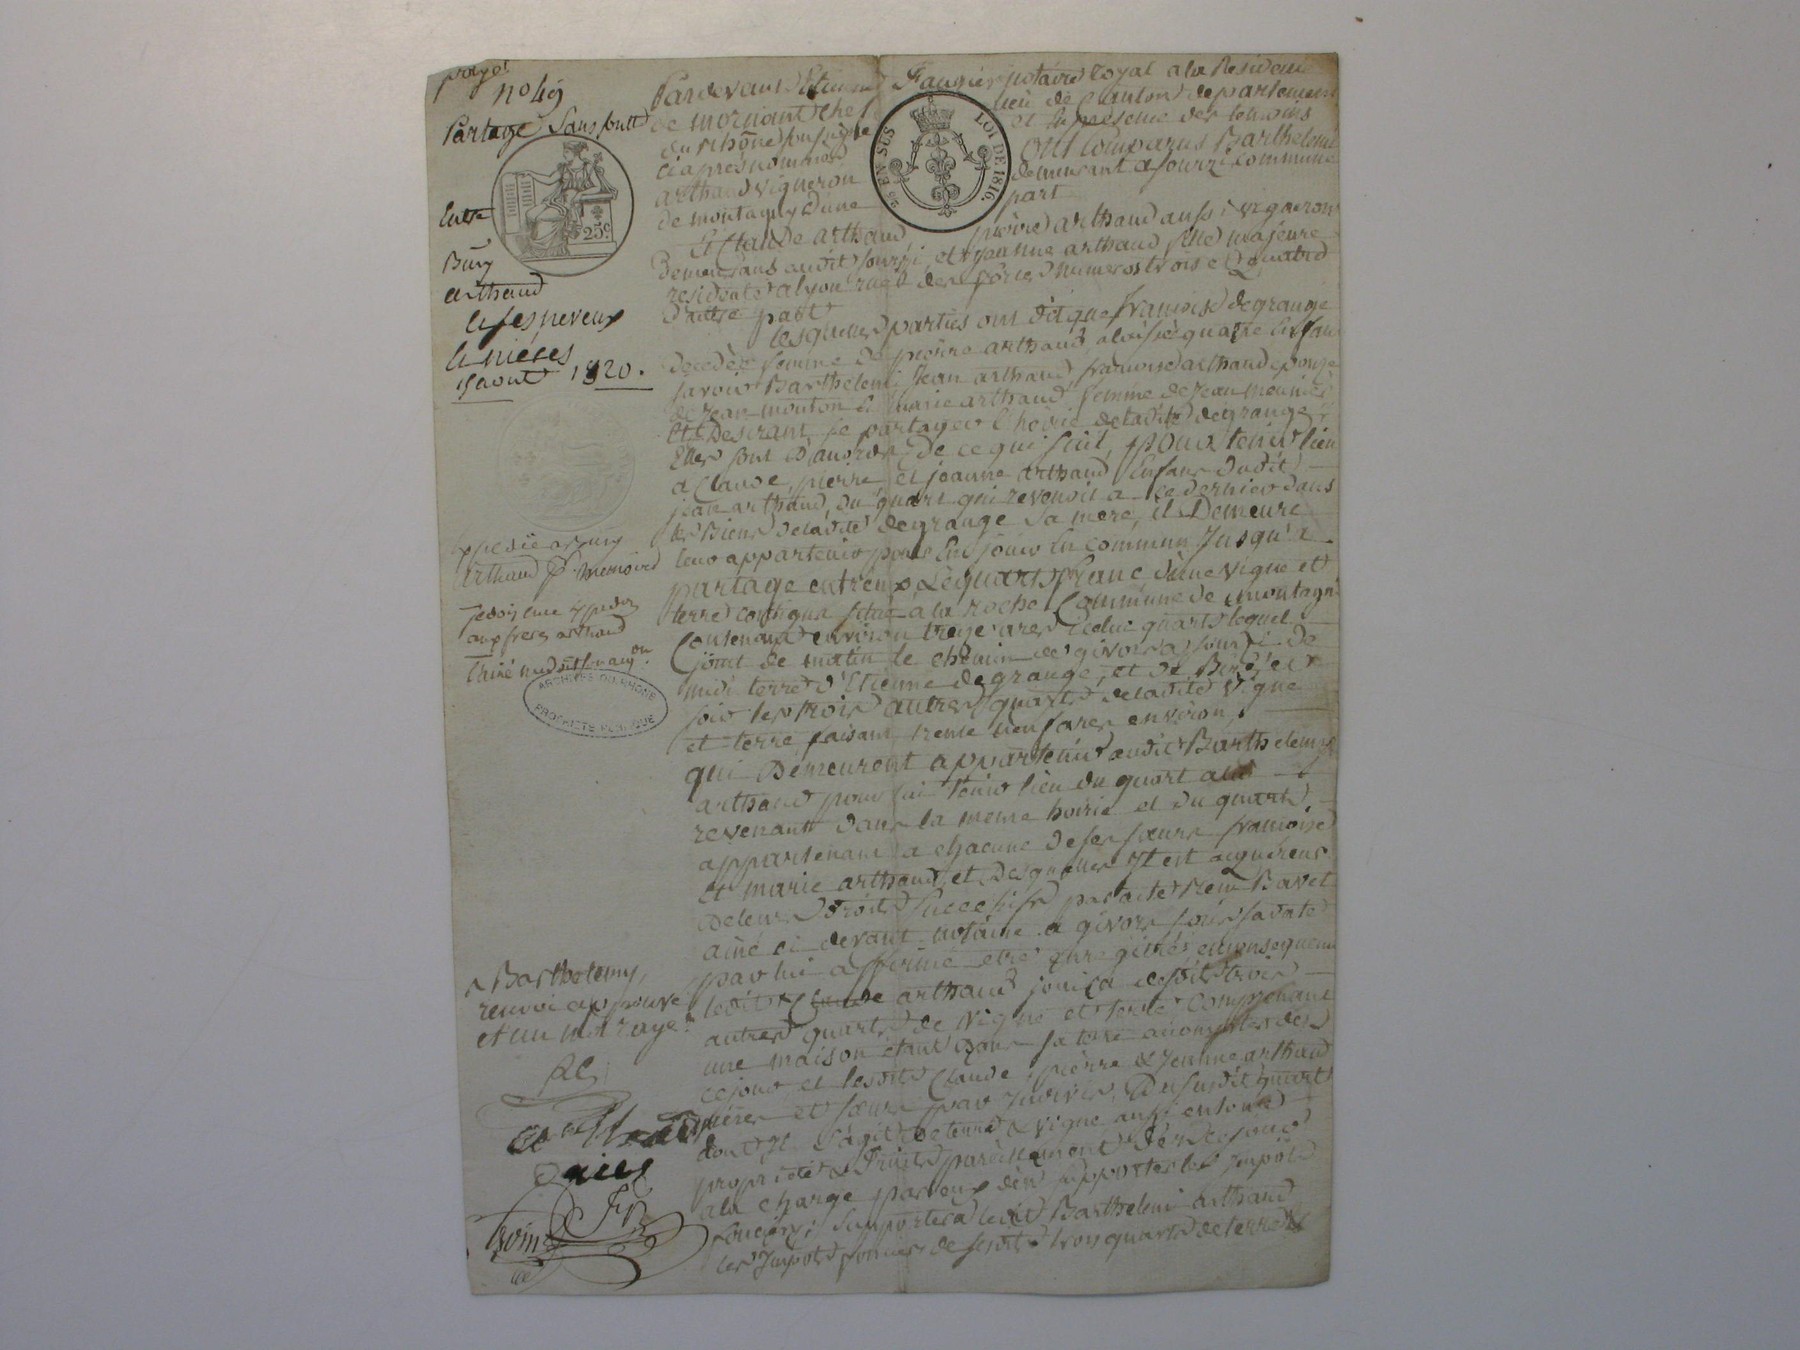 no 49
Partage Sans soulte
Entre
Bmy
arthaud
et ses neveux
et nieces
15 aout 1820.
25c
2e EN SUS
LOI DE 1816.
Pardevant Etienne Faugier notaire Royal a la Residence
de mornant chef lieu de Canton departement
du rhône soussigné et en presence des temoins
ci apres nommés ont Comparus Barthelemi
arthaud vigneron demeurant a sourzi Commune
de montagny d'une part
Et Claude arthaud, pierre arthaud aussi vigneron
demeurans audit sourzi, et jeanne arthaud fille majeure
residente a lyon rue des forces numeros trois et quatre
d'autre part
lesquelles parties ont dit que françoise degrange
decedée femme de pierre arthaud, a loissé quatre Enfans
savoir Barthelemi, Jean arthaud, françoise arthaud epouse
de Jean mouton et marie arthaud femme de Jean meunier
Et Desirant se partager l'hoirie de ladite degrange
Elles sont d'accord de ce qui suit, pour tenir lieu
a Claude, pierre, et jeanne arthaud Enfans dudit
jean arthaud, du quart qui revenoit a ce dernier dans
les Biens de ladite degrange sa mere, il Demeure
leur appartenir pour En jouir en commun Jusqu'a
partage entr'eux Le quart franc d'une vigne et
terre contigue situé a la roche Commune de montagni
Contenant environ treize ares ledit quart lequel
joint de matin le chemin de givors a sourzi de
midi terre d'Etienne degrange, et de Bize et
soir les trois autres quarts de ladite vigne
et terre faisant trente neuf ares environ,
qui Demeurent appartenir audit Barthelemi
arthaud pour lui tenir lieu du quart a lui
revenant dans la meme hoirie et du quart
appartenant a chacune de ses sœurs françoise
et marie arthaud, et desquelles Il est acquereur
de leurs droits successifs par acte reçu Bavet
ainé ci devant notaire a givors sous sa date
par lui affirmé etre enregitrés en consequence
ledit Claude arthaud jouira desdits trois
autres quarts de vigne et terre Comprenant
une maison étant dans sa terre a compter de
ce jour et lesdits Claude, pierre & Jeanne arthaud
freres et sœur par indivis, du susdit quart
dont Il s'agit de terre & vigne aussi en toute
propriété & fruits pareillement dès ce jour
a la charge par eux d'en supporter les impôts
fonciers; supportera ledit Barthelemi arthaud
les Impots fonciers de sesdits trois quarts de terre &
Expedié a Bmy
arthaud
aux freres arthaud
ARCHIVES DU RHONE
PROPRIETE PUBLIQUE
Barthelemy
renvoi approuvé
et un mot rayé